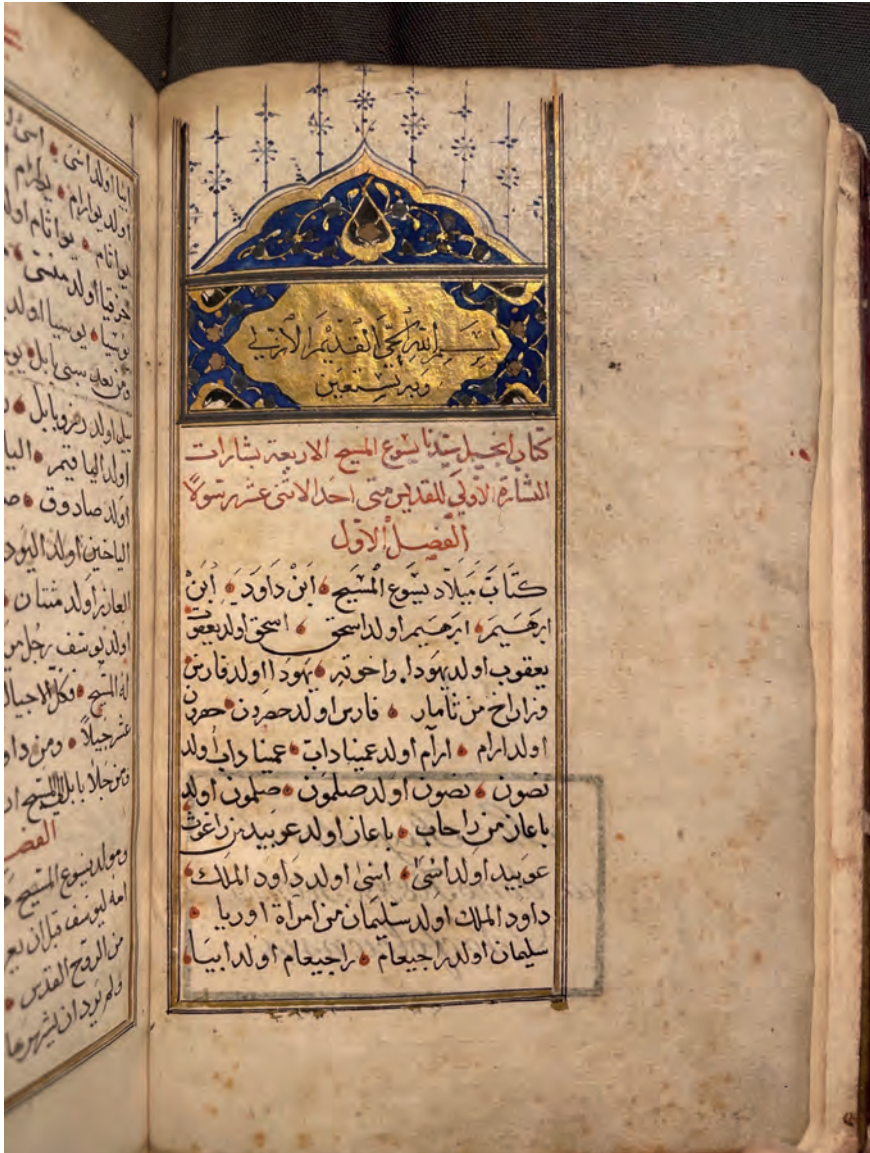 بسم الله الحي القديم الازلي
وبه نستعين
كتاب انجيل سيدنا يسوع المسيح الاربعة بشارات
البشارة الاولي للقديس متى احد الاثنى عشر رسولًا
الفصل الاول
كتاب ميلاد يسوع المسيح ابن داود ابن
ابرهيم ابرهيم اولد اسحق اسحق اولد يعقوب
يعقوب اولد يهودا واخوته يهودا اولد فارص
وزاراخ من ثامار فارص اولد حصرون حصرون
اولد ارام ارام اولد عمينا داب عمينا داب اولد
نصون نصون اولد صلمون صلمون اولد
باعاز من راحاب باعاز اولد عوبيد من راغوث
عوبيد اولد اسى اسى اولد داود الملك
داود الملك اولد سليمان من امراة اوريا
سليمان اولد راجيعام راجيعام اولد ابيا
ابيا اولد اسى
اولد يوارام
يواثام
حزقيا اولد منسى
يوشيا يوشيا اولد
ومن بعد سبى بابل
اولد زروبابل
اولد الياقيم
اولد صادوق
الياخين اولد اليود
العازر اولد متثان
اولد يوسف رجل
له المسيح فكل الاجيال
عشر جيلًا ومن
ومن جلا بابل الى المسيح
ومولد يسوع المسيح
امه ليوسف قبل ان
من الروح القدس
ولم يرد ان يشهرها